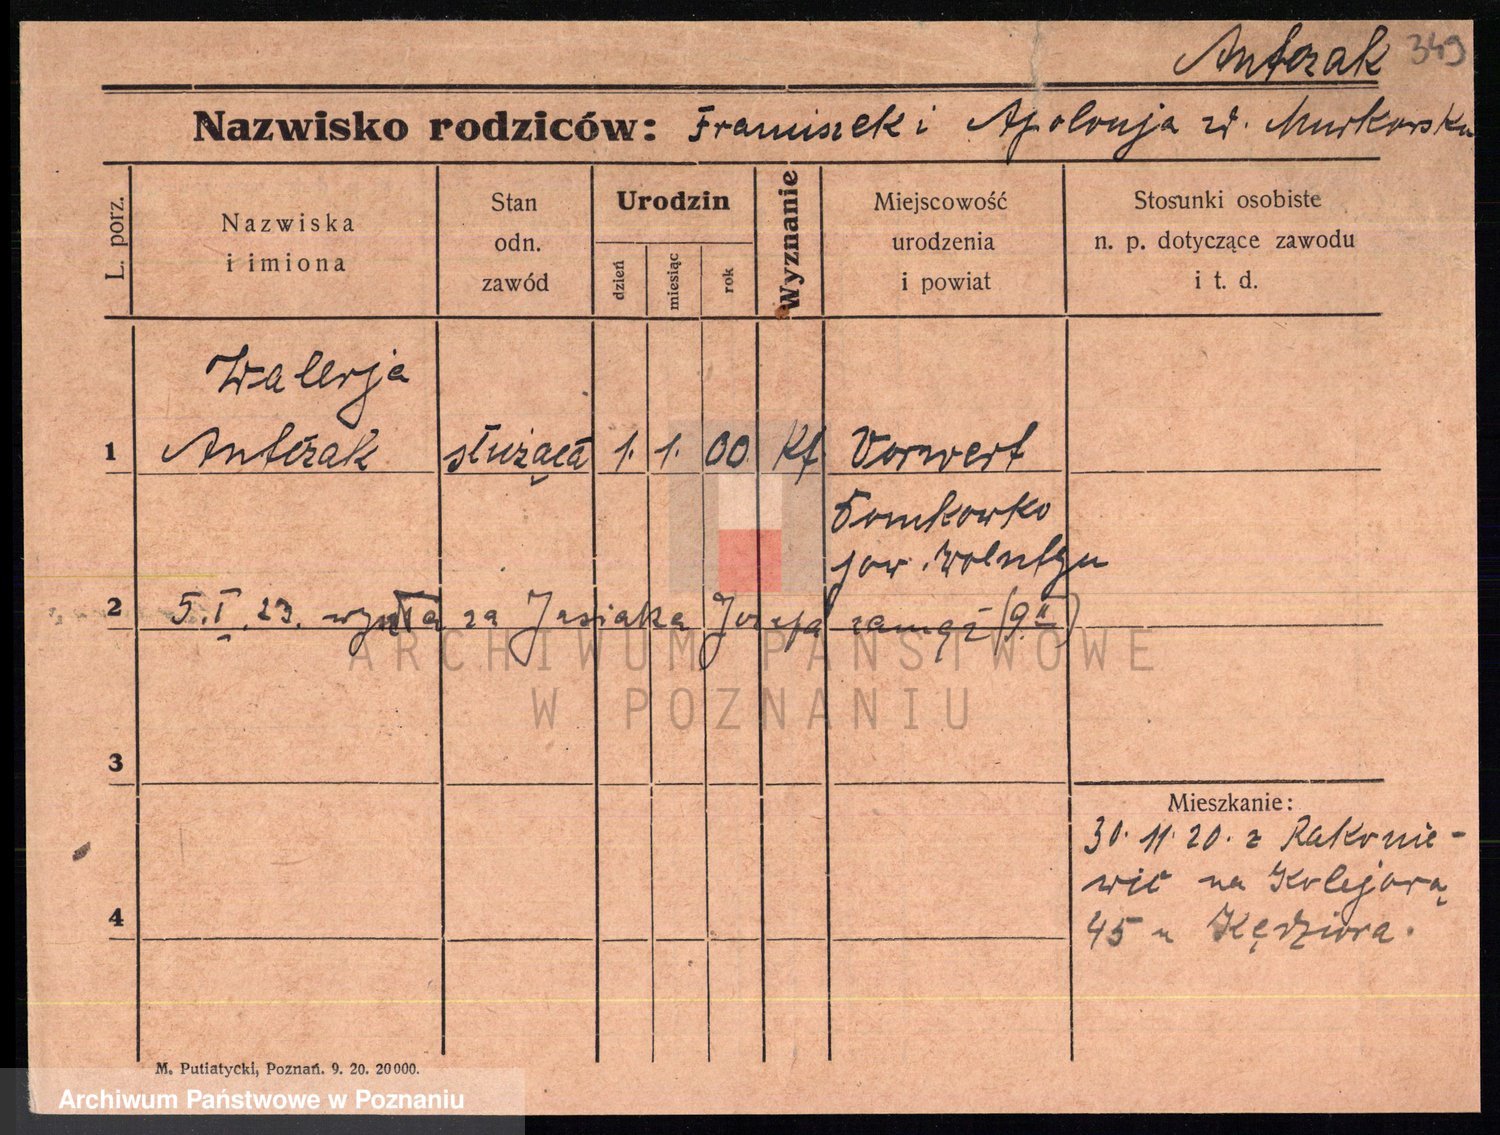 Antczak 349
Nazwisko rodziców: Franciszek i Apolonja zd. Murkowska
L. porz.
Nazwiska
i imiona
Stan
odn.
zawód
Urodzin
dzień
miesiąc
rok
Wyznanie
Miejscowość
urodzenia
i powiat
Stosunki osobiste
n. p. dotyczące zawodu
i t. d.
Walerja
1 Antczak służąca 1. 1. 00 Kf Vorwert
Tomkowko
pow. Wolsztyn
2 5.I.23. wyszła za Jasiaka Józefa zamąż (9 II)
3
4
Mieszkanie:
30. 11. 20. z Rakonie-
wic na Kolejową
45 u Kędziora.
M. Putiatycki, Poznań. 9. 20. 20000.
ARCHIWUM PAŃSTWOWE
W POZNANIU
Archiwum Państwowe w Poznaniu